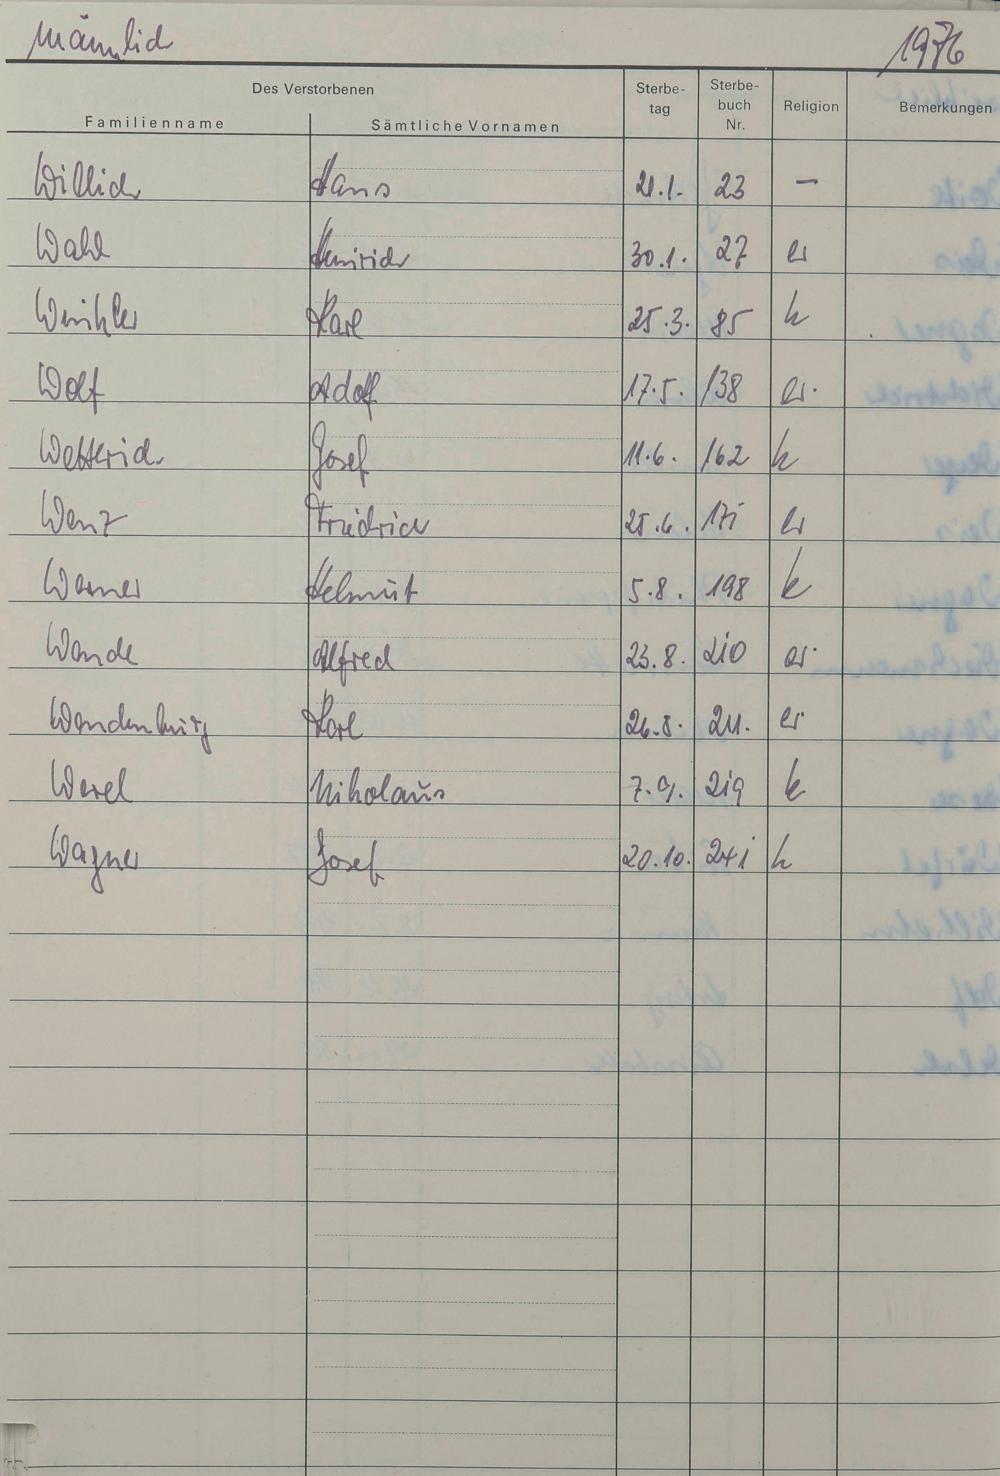 Männlich 1976
Des Verstorbenen Sterbe- Sterbe- Religion Bemerkungen
tag buch
Familienname Sämtliche Vornamen Nr.
Willich Hans 21.1. 23 —
Wahl Heinrich 30.1. 27 ev
Winkler Karl 25.3. 85 k
Wolf Adolf 17.5. 138 ev.
Wetterich Josef 11.6. 162 k
Wenz Friedrich 25.6. 171 ev
Werner Helmut 5.8. 198 k
Wende Alfred 23.8. 210 ev.
Wendenburg Karl 26.8. 211. ev
Werel Nikolaus 7.9. 219 k
Wagner Josef 20.10. 241 k